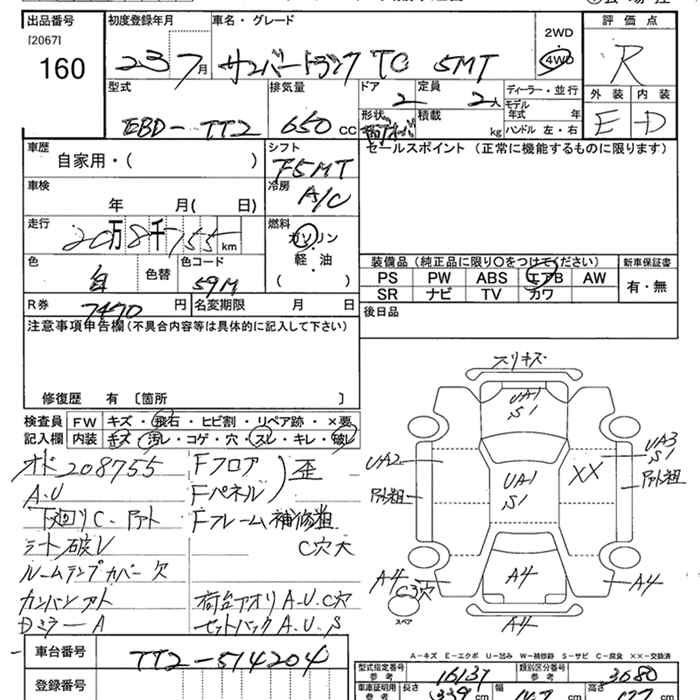 出品番号
[2067]
160
初度登録年月
23 7月
車名・グレード
サンバートラック TC 5MT
2WD
4WD
評価点
R
外装 内装
E D
型式
EBD-TT2
排気量
650 cc
ドア
2
定員
2人
形状
積載
kg
ディーラー・並行
モデル年式 年
ハンドル 左・右
車歴
自家用・( )
シフト
F5MT
セールスポイント (正常に機能するものに限ります)
車検
年 月( 日)
冷房
A/C
走行
20万8千755km
燃料
ガソリン
・
軽油
( )
色
白
色替
色コード
59M
装備品 (純正品に限り○をつけてください)
PS PW ABS エアB AW
SR ナビ TV カワ
新車保証書
有・無
R券
7470円
名変期限 月 日
後日品
注意事項申告欄(不具合内容等は具体的に記入して下さい)
修復歴 有 〔箇所 〕
検査員記入欄
FW キズ・飛石・ヒビ割・リペア跡・×要
内装 キズ・汚レ・コゲ・穴・スレ・キレ・破レ
オド208755
A.U
下廻りC.アト
シート破レ
ルームランプカバー欠
カンバンアト
DミラーA
Fフロア
Fパネル
歪
Fフレーム補修粗
C穴大
荷台アオリA.U.C穴
セットバックA.U.S
スリキズ
UA1
S1
UA2
UA1
S1
XX
UA3
S1
アト粗
アト粗
A4
C3穴
A4
A4
A4
スペア
A-キズ E-エクボ U-凹み W-補修跡 S-サビ C-腐食 XX-交換済
車台番号
TT2-514204
登録番号
型式指定番号
参考
16137
類別区分番号
参考
3680
車庫証明用
参考
長さ
339cm
幅
147cm
高さ
cm